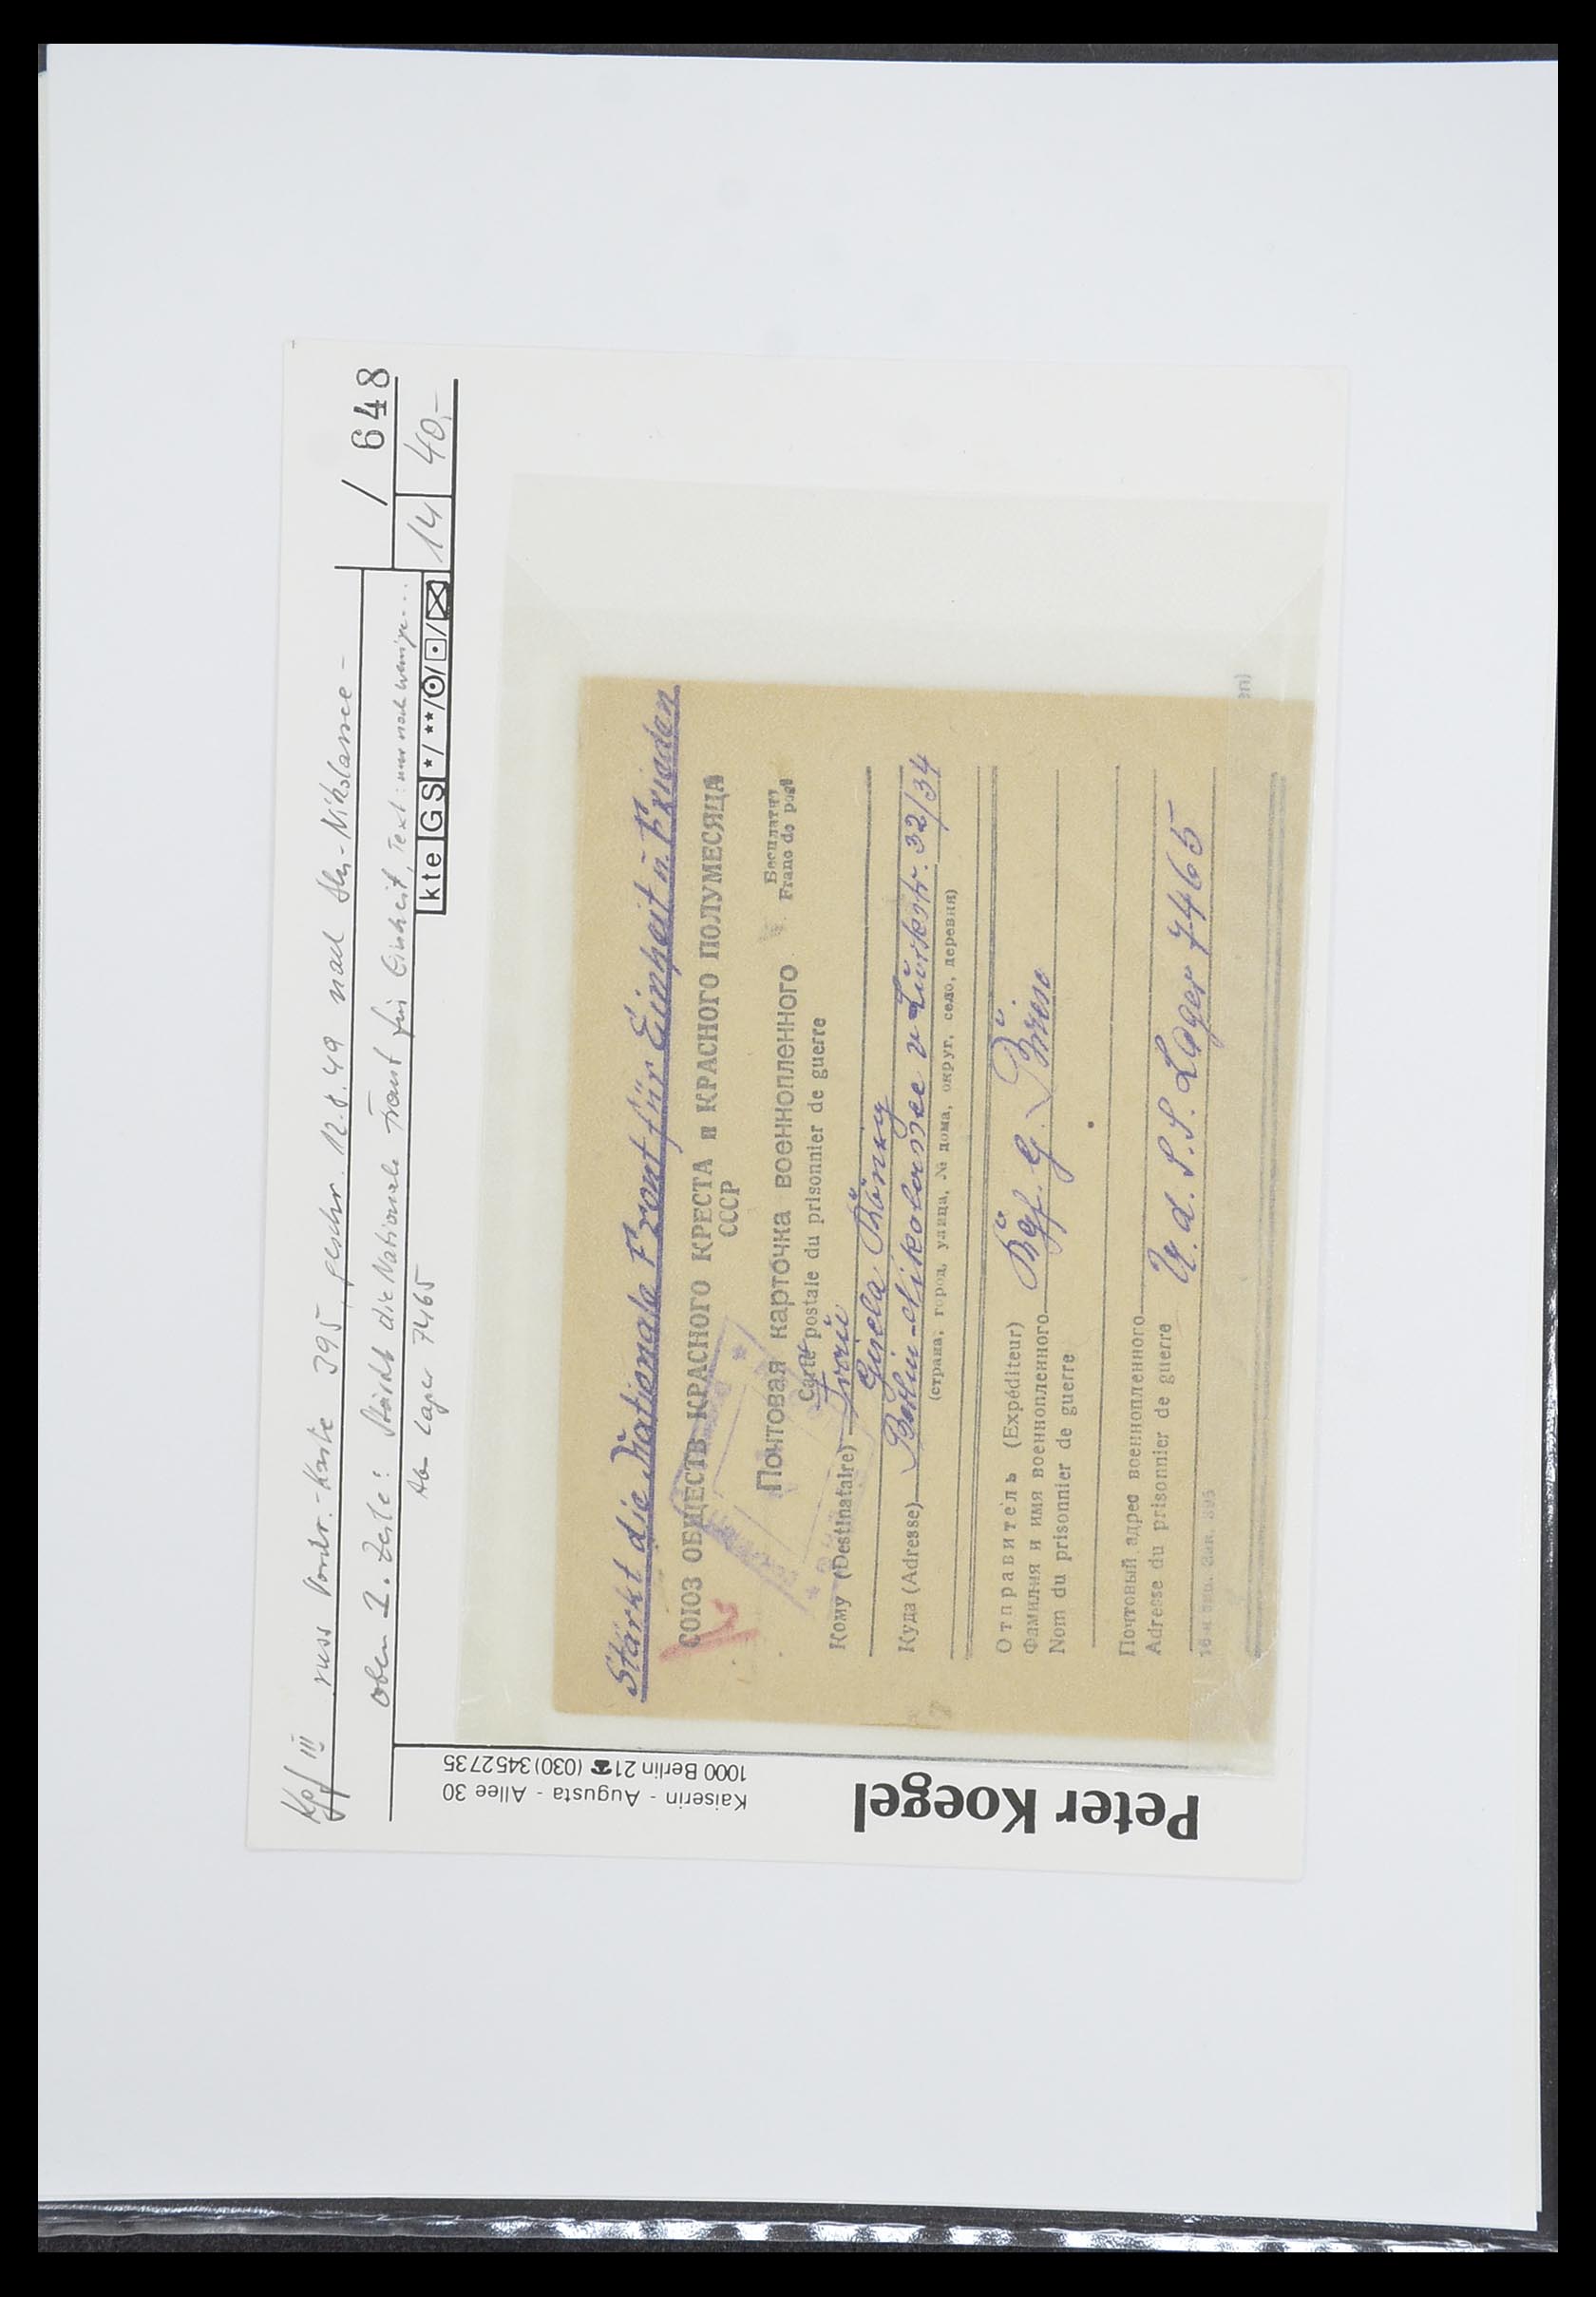 Kgf III russ Vordr.-Karte 395, geschr. 12.8.49 nach Bln-Nikolassee -
/ 648
oben 1. Zeile: Stärkt die Nationale Front für Einheit, Text: nur noch wenige...
Ab Lager 7465
kte GS */**/⊙/⊡/⊠ 14 40,-
Stärkt die Nationale Front für Einheit u. Frieden
СОЮЗ ОБЩЕСТВ КРАСНОГО КРЕСТА и КРАСНОГО ПОЛУМЕСЯЦА
СССР
Почтовая карточка военнопленного
Бесплатно
Carte postale du prisonnier de guerre
Franc de port
Кому (Destinataire) Frau
Gisela
Куда (Adresse) Berlin-Nikolassee 32/34
(страна, город, улица, № дома, округ, село, деревня)
Отправитель (Expéditeur)
Фамилия и имя военнопленного
Nom du prisonnier de guerre
Kgf. G.
Почтовый адрес военнопленного
Adresse du prisonnier de guerre
U.d.S.S. Lager 7465
16-я тип. Зак. 395
Peter Koegel
Kaiserin - Augusta - Allee 30
1000 Berlin 21 ☎ (030) 3452735